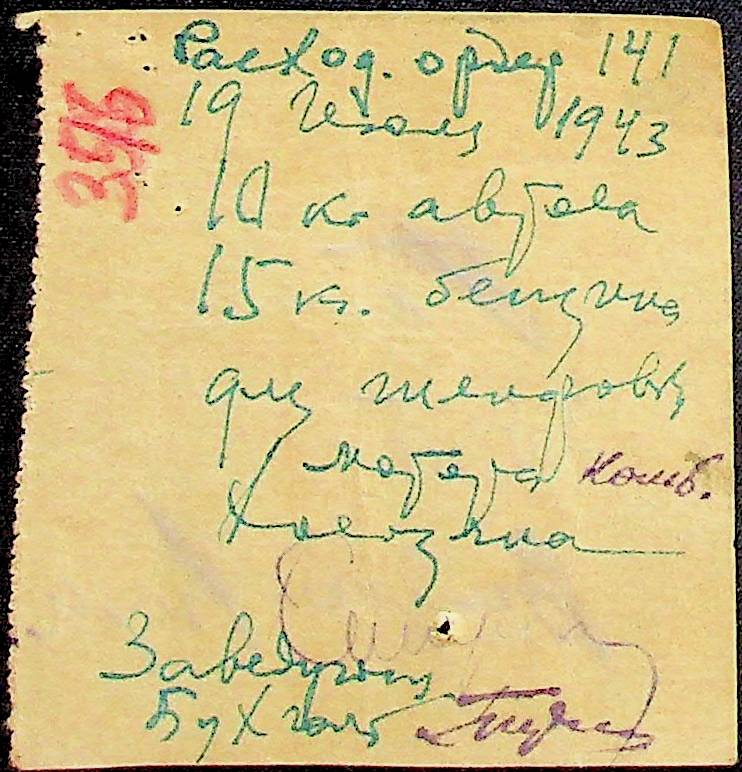 Расход. ордер 141
396
19 Июля 1943
10 кг автола
15 кг. бензина
для шлифовки
мотора комб.
Заведующ
Бухгалт